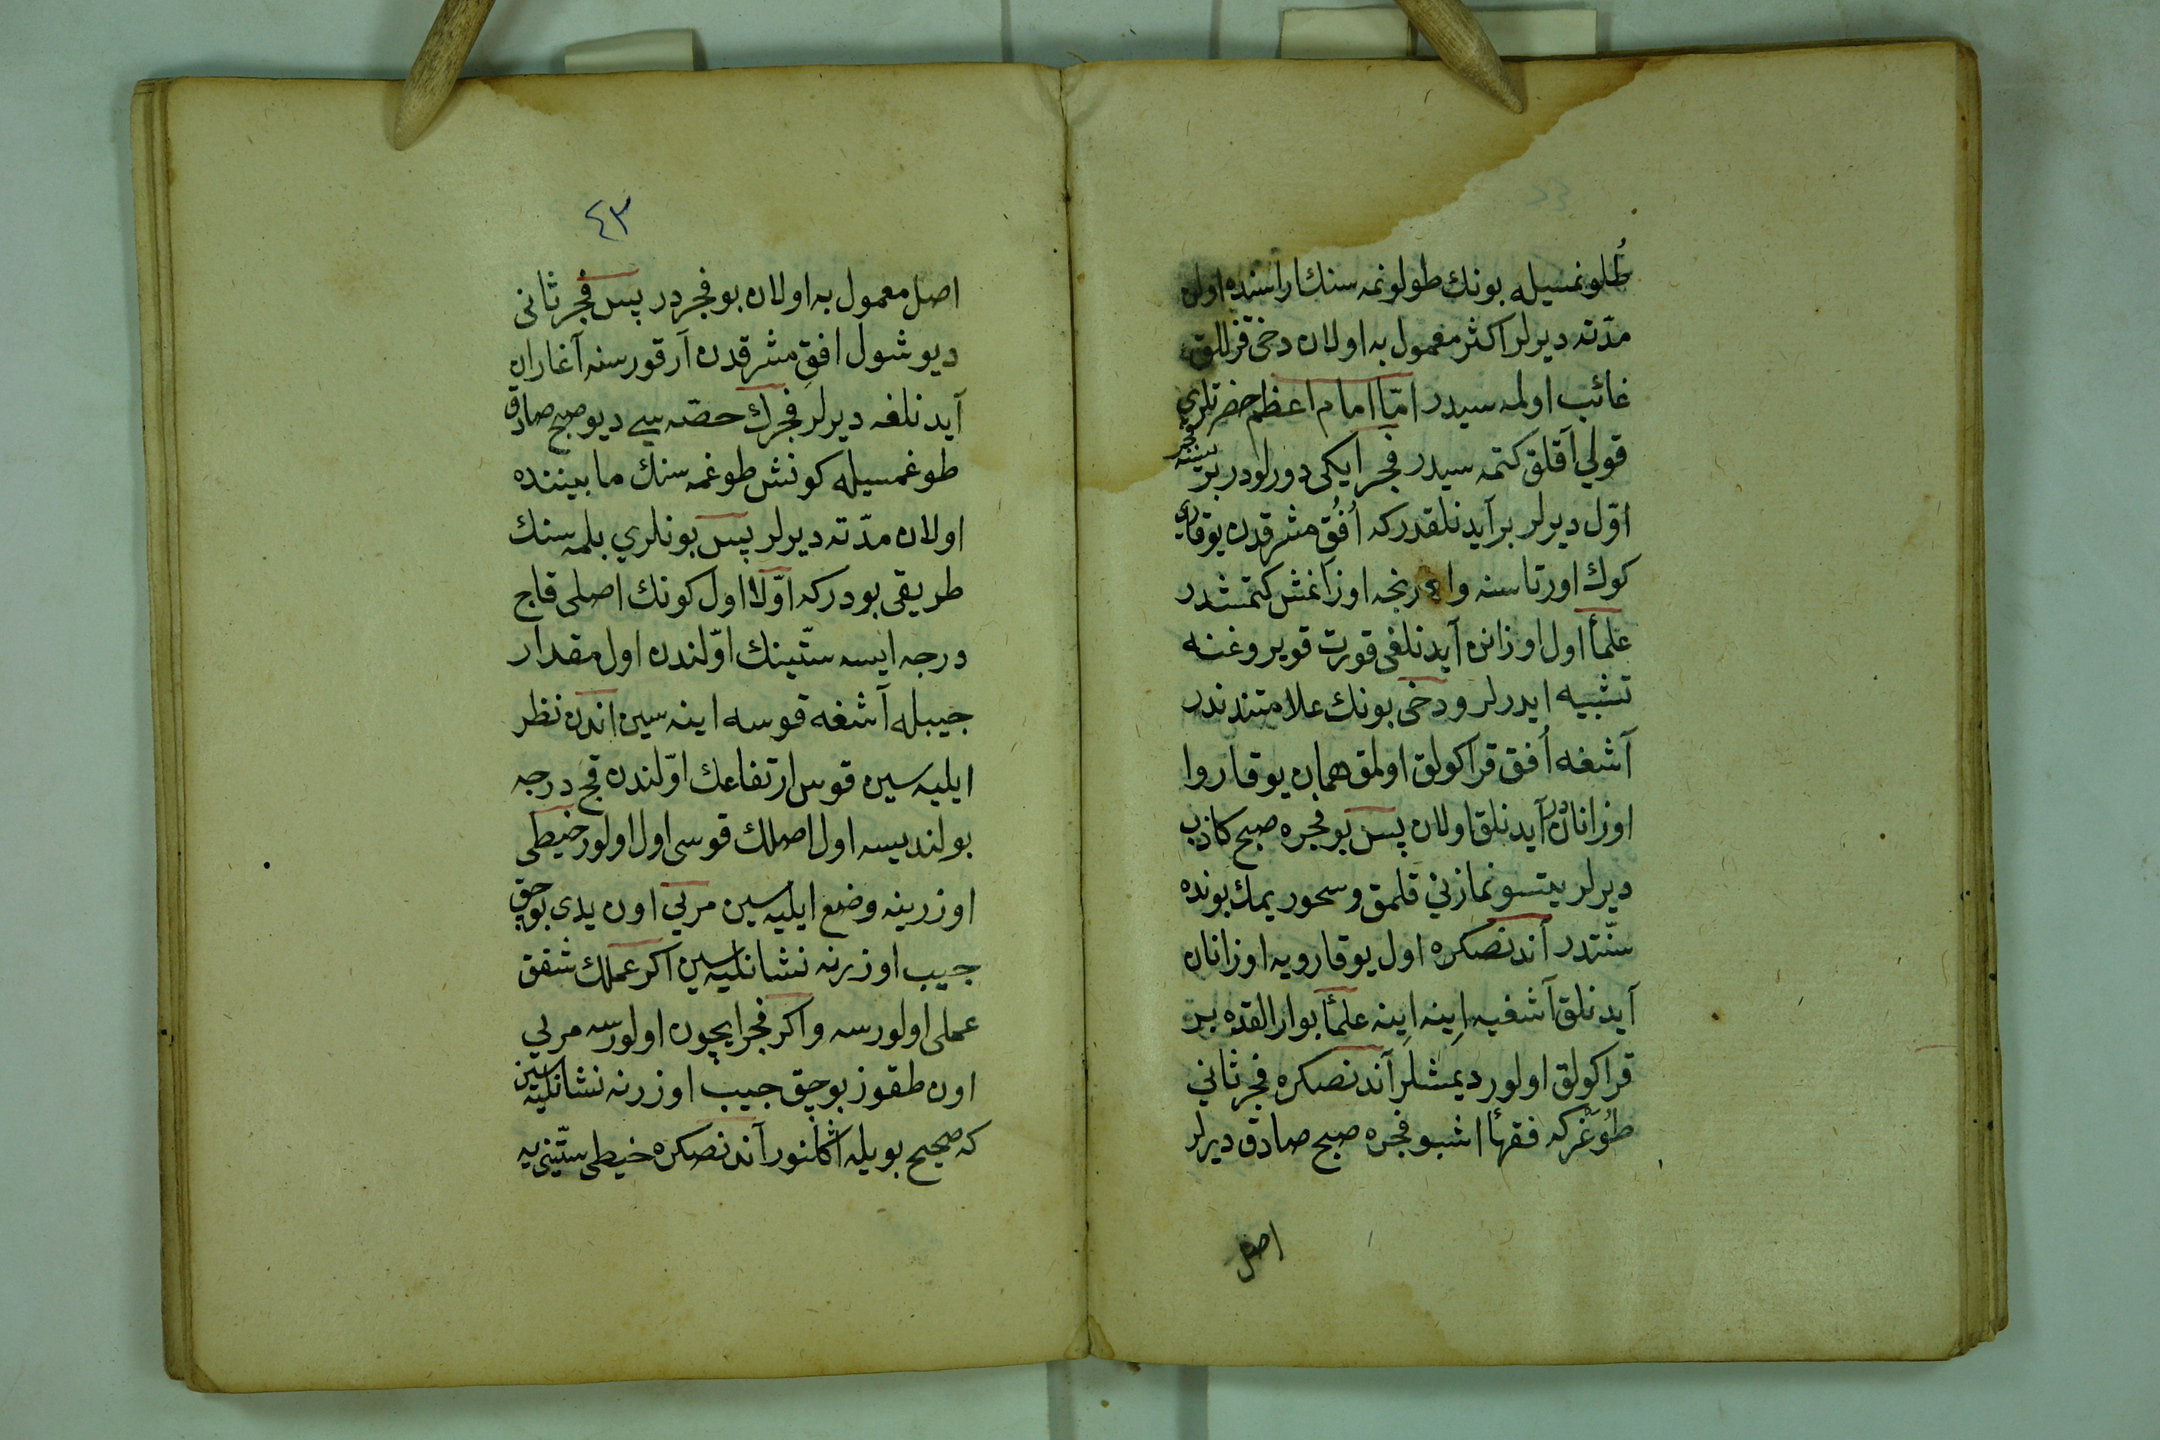 طُلونمسيله بونك طولونمه سنك اراسنده اولن
مدّته ديرلر اكثر معمول به اولان دخى قزللق
غائب اولمه سيدر امّا امام اعظم حضرتلرى
قولي آقلق كتمه سيدر فجر ايكى دورلودر برسنه فجر
اوّل ديرلر بر آيدنلقدركه اُفُقِ مشرقدن يوقارى
كوك اورتاسنه وارنجه اوزانمش كتمشدر
علمأ اول اوزانن آيدنلغى قورت قويروغنه
تشبيه ايدرلر و دخى بونك علامتندندر
آشغه اُفق قراكولق اولمق همان يوقاروا
اوزانان آيدنلق اولان پس بو فجره صبح كاذب
ديرلر يتسو نمازني قلمق و سحور يمك بونده
سنّتدر آندنصكره اول يوقارويه اوزانان
آيدنلق آشغيه اِينه اِينه علمأ بو ارالقده بر
قراكولق اولور ديمشلر آندنصكره فجر ثاني
طوغركه فقهأ اشبو فجره صبح صادق ديرلر
اصل
٤٣
اصل معمول به اولان بو فجردر پس فجر ثانى
ديو شول افقِ مشرقدن آرقورسنه آغاران
آيدنلغه ديرلر فجرك حصّه سي ديو صبح صادق
طوغمسيله كونش طوغمه سنك مابيننده
اولان مدّته ديرلر پس بونلري بلمه سنك
طريقى بودركه اوّلا اول كونك اصلى قاج
درجه ايسه ستّينك اوّلندن اول مقدار
جيبله آشغه قوسه اينه سين اندن نظر
ايليه سين قوس ارتفاعك اوّلندن قچ درجه
بولنديسه اول اصلك قوسى اول اولور خيطى
اوزرينه وضع ايليه سين مربي اون يدى بوچق
جيب اوزرنه نشانليه سين اكر عملك شفق
عملى اولورسه و اكر فجر ايچون اولورسه مربي
اون طقوز بوچق جيب اوزرنه نشانليه سين
كه صحيح بويله اكلنور آندنصكره خيطى ستّينى يه